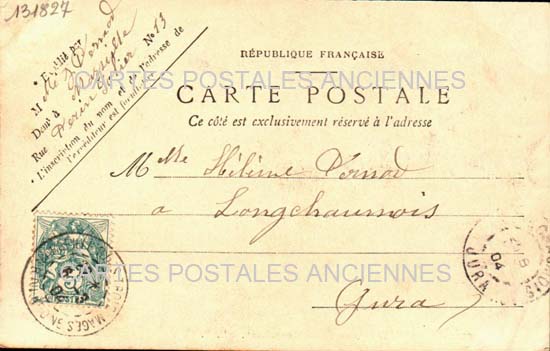 131827
Expédié par
M
Dom' à
Rue Nº 13
L'inscription du nom et de l'adresse de
l'expéditeur est facultative
RÉPUBLIQUE FRANÇAISE
CARTES POSTALES ANCIENNES
CARTE POSTALE
Ce côté est exclusivement réservé à l'adresse
Mlle Hélène
à Longchaumois
Jura
CARTES POSTALES ANCIENNES
04
JURA